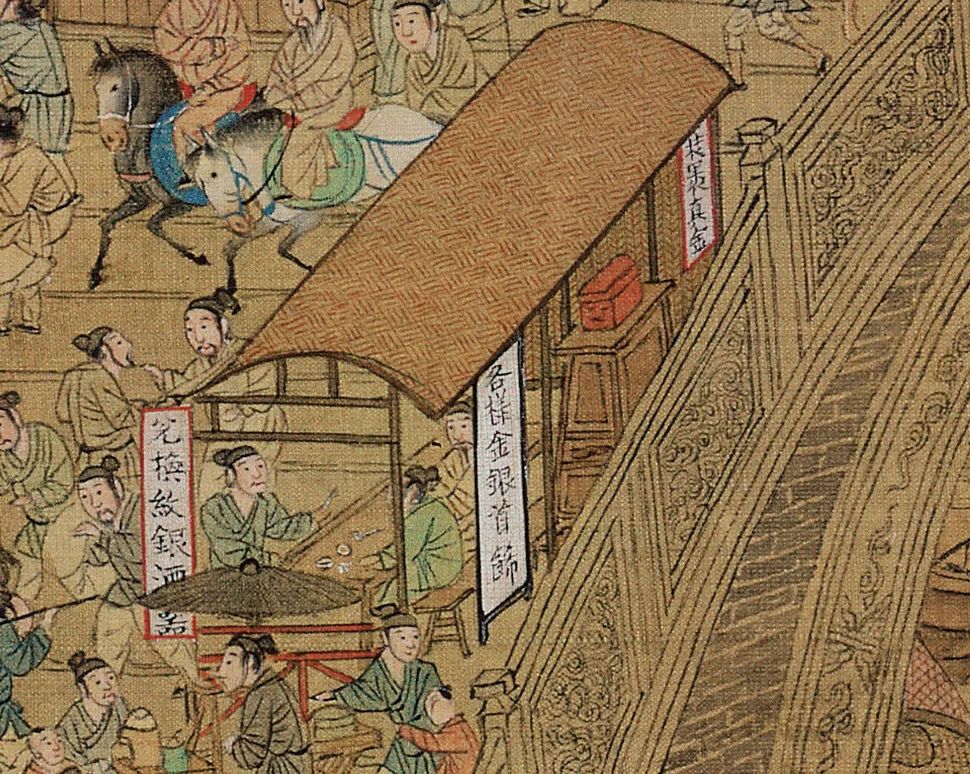 裝裹真金
各樣金銀首飾
兌換紋銀酒器